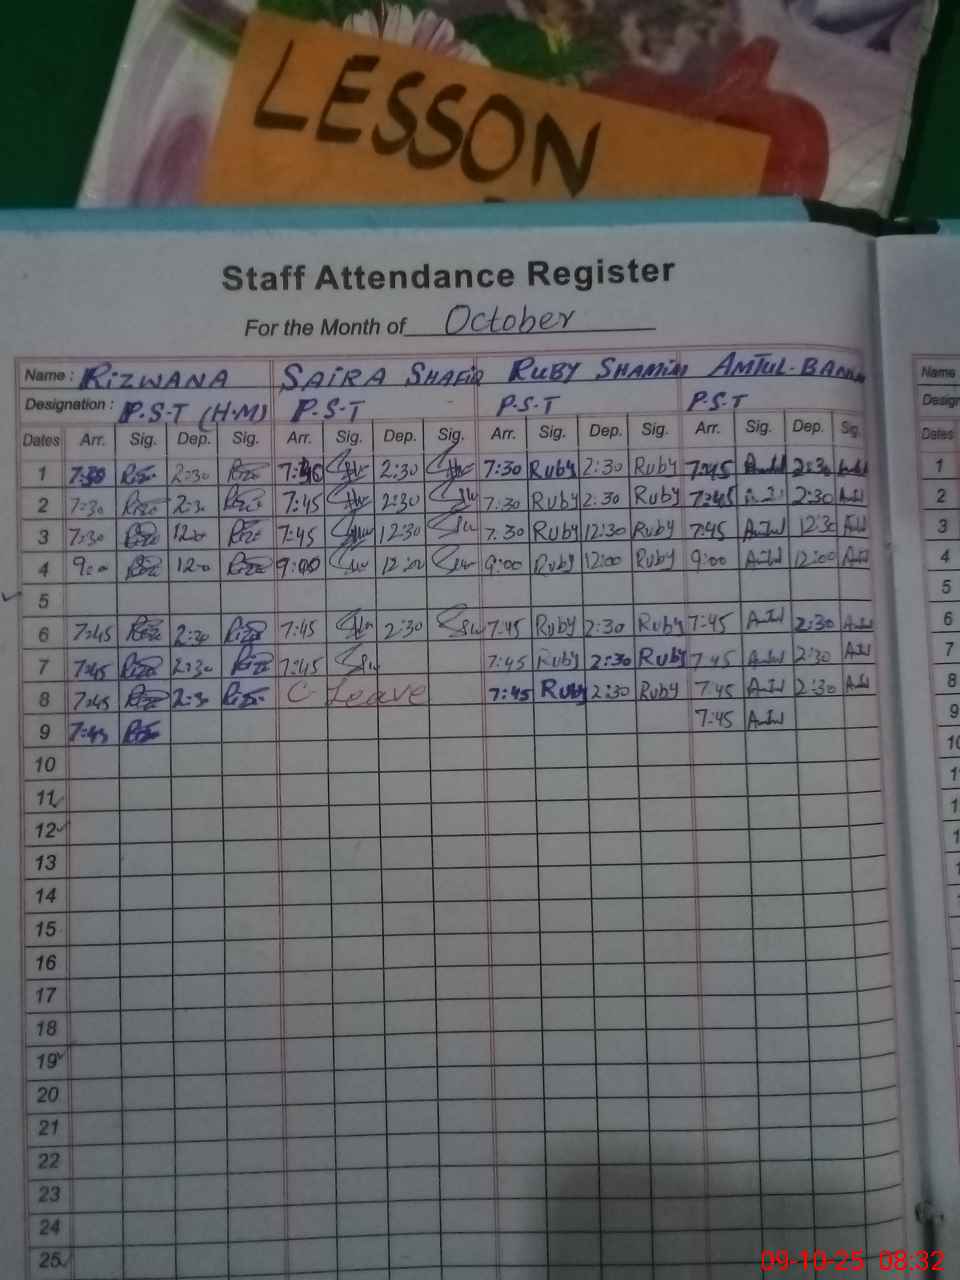 LESSON
Staff Attendance Register
For the Month of October
Name : RIZWANA SAIRA SHAFIQ RUBY SHAMIM AMTUL-BANO Name
Designation : P.S.T (H.M) P.S.T P.S.T P.S.T
Dates Arr. Sig. Dep. Sig. Arr. Sig. Dep. Sig. Arr. Sig. Dep. Sig. Arr. Sig. Dep. Sig. Dates
1 7:30 2:30 7:45 2:30 7:30 Ruby 2:30 Ruby 7:45 2:30 1
2 7:30 2:30 7:45 2:30 7:30 Ruby 2:30 Ruby 7:45 2:30 2
3 7:30 7:45 12:30 7.30 Ruby 12:30 Ruby 7:45 Amtul 12:30 3
4 9:00 9:00 12:00 9:00 Ruby 12:00 Ruby 9:00 Amtul 12:00 4
5 5
6 7:45 2:30 7:45 2:30 7:45 Ruby 2:30 Ruby 7:45 Amtul 2:30 6
7 7:45 2:30 7:45 7:45 Ruby 2:30 Ruby 7:45 Amtul 2:30 7
8 7:45 2:30 C-Leave 7:45 Ruby 2:30 Ruby 7:45 Amtul 2:30 8
9 7:45 7:45 Amtul 9
10
11
12
13
14
15
16
17
18
19
20
21
22
23
24
25
09-10-25 08:32